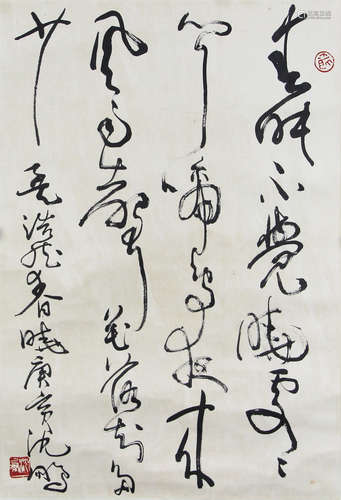 春眠不覺曉處々
聞啼鳥夜來
風雨聲花落知多
少
孟浩然春曉庚寅沈鵬